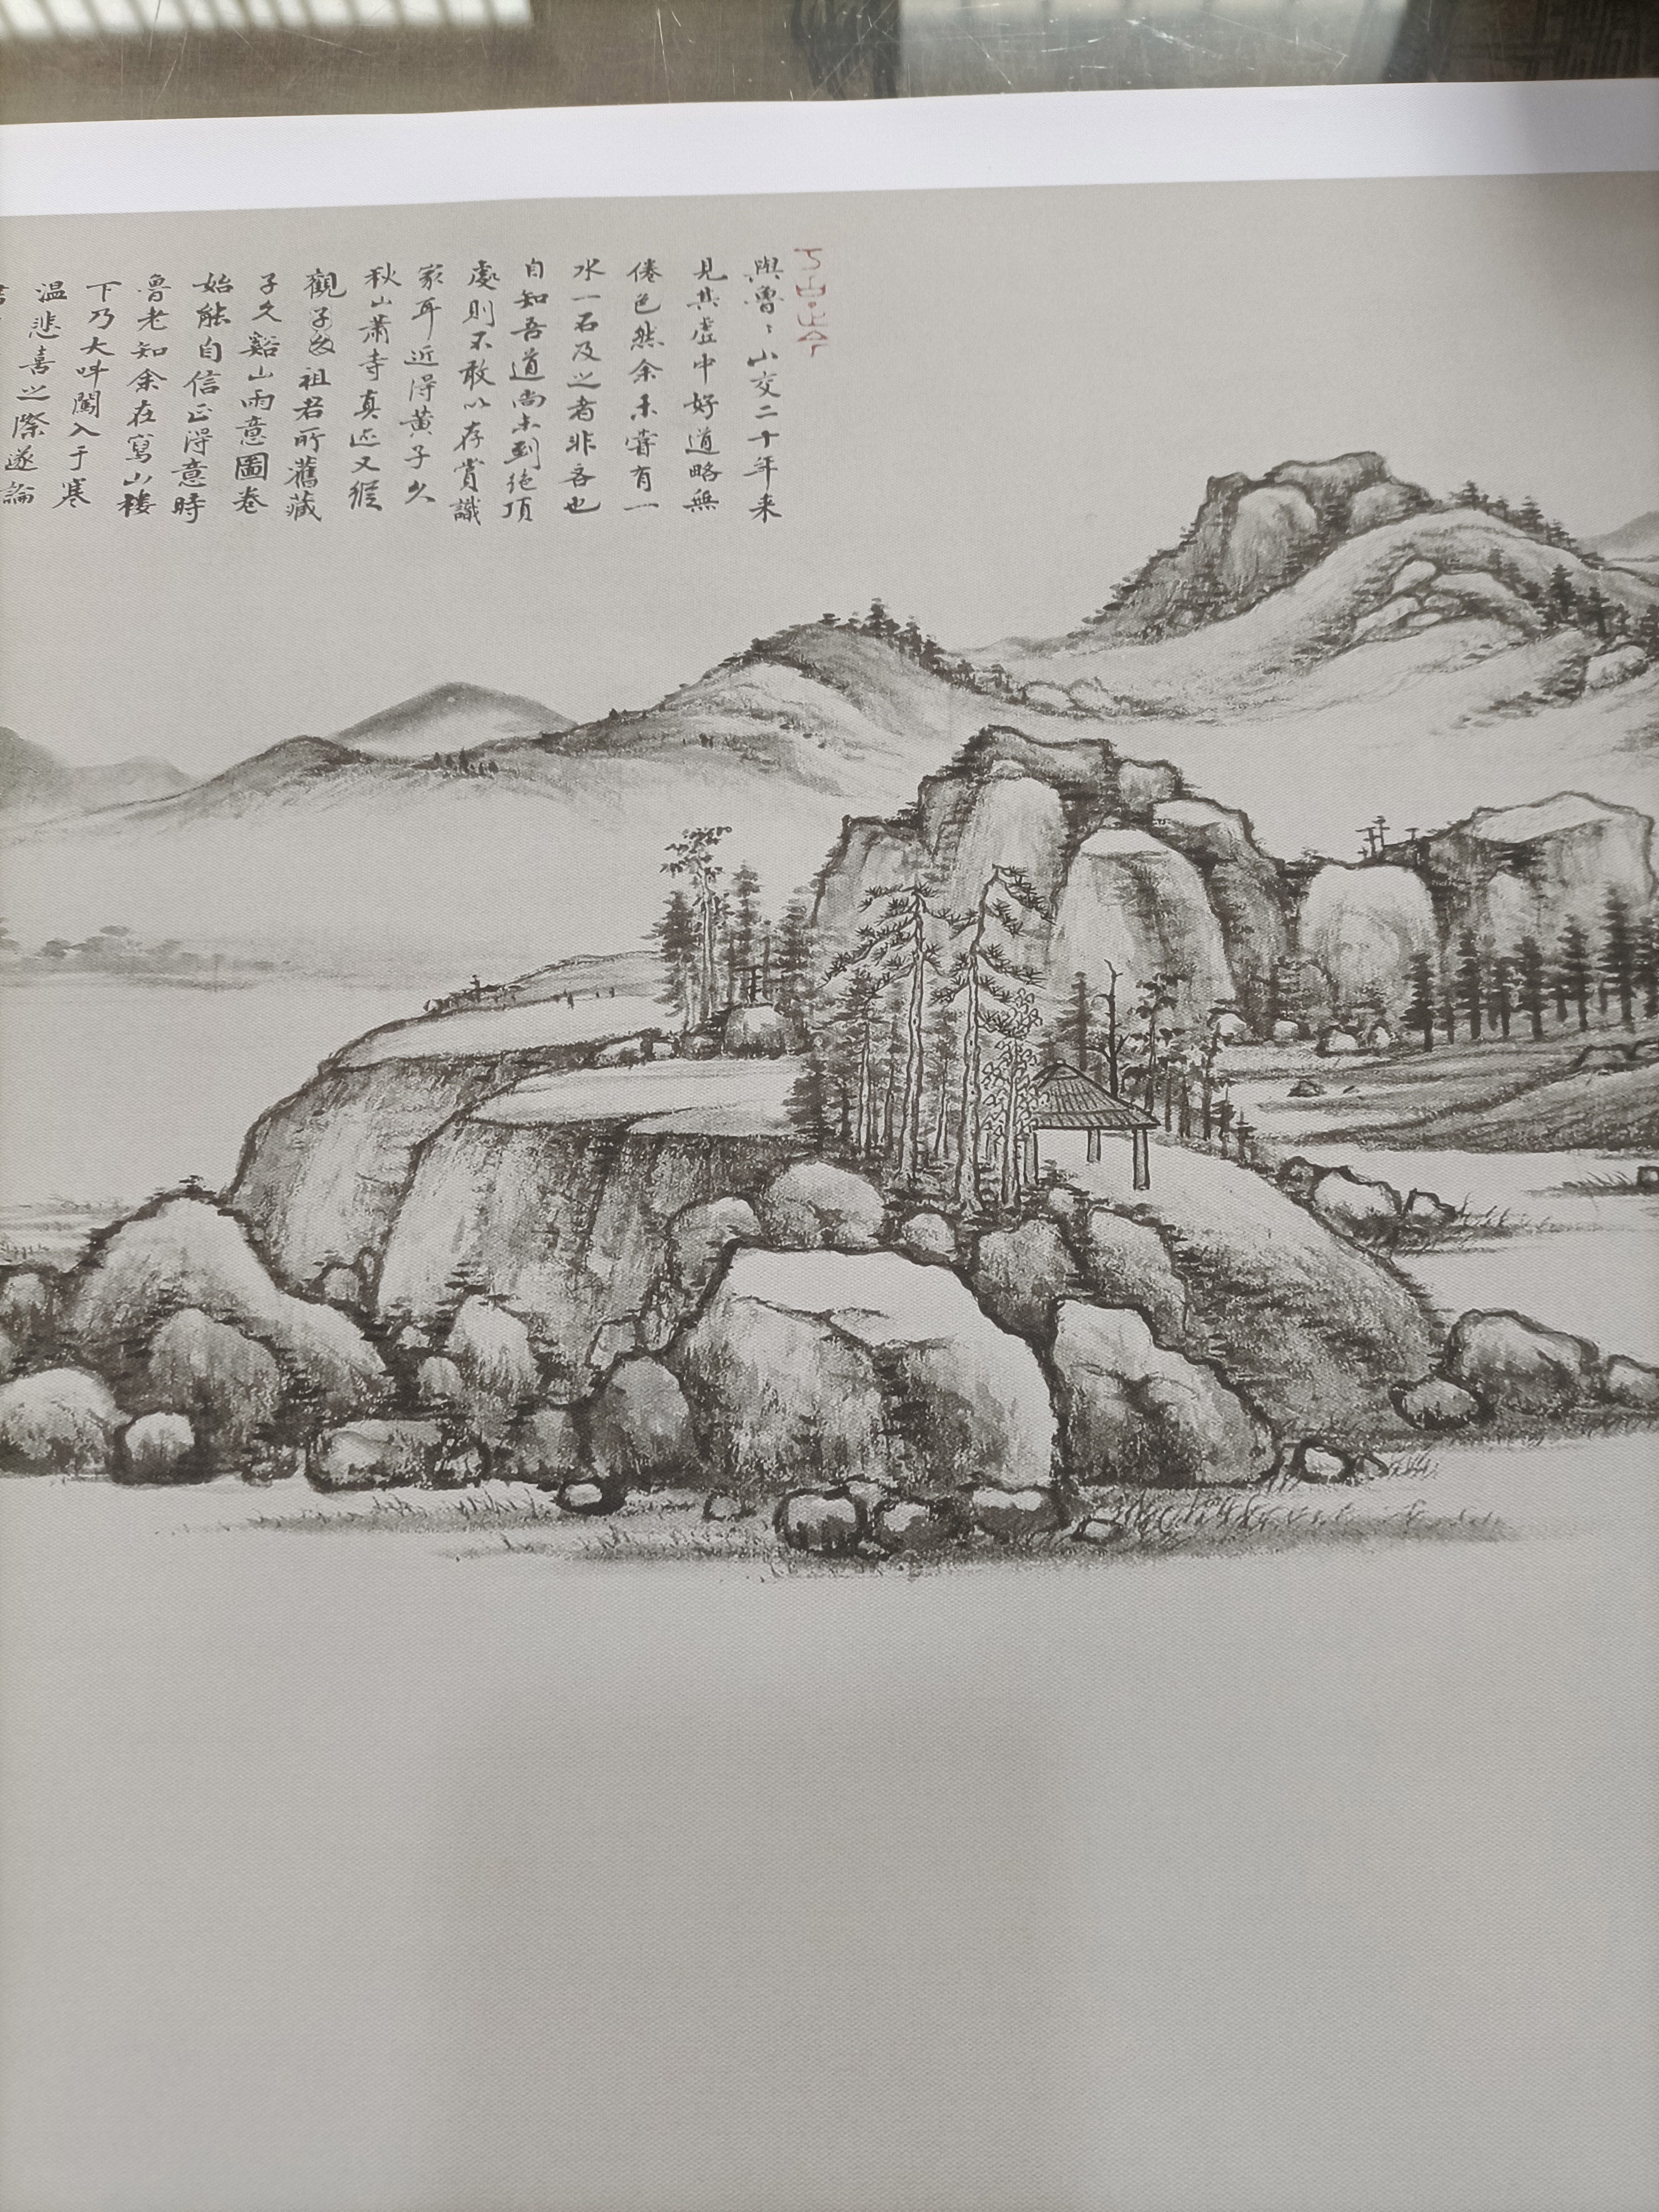 與魯魯山交二十年来
見其虚中好道略無
倦色然余未嘗有一
水一石及之者非吝也
自知吾道尚未到绝頂
處則不敢以存賞識
家耳近得黄子久
秋山蕭寺真迹又從
觀子敦祖君所舊藏
子久谿山雨意圖卷
始能自信正得意時
魯老知余在寫山楼
下乃大呌闖入于寒
温悲喜之際遂論